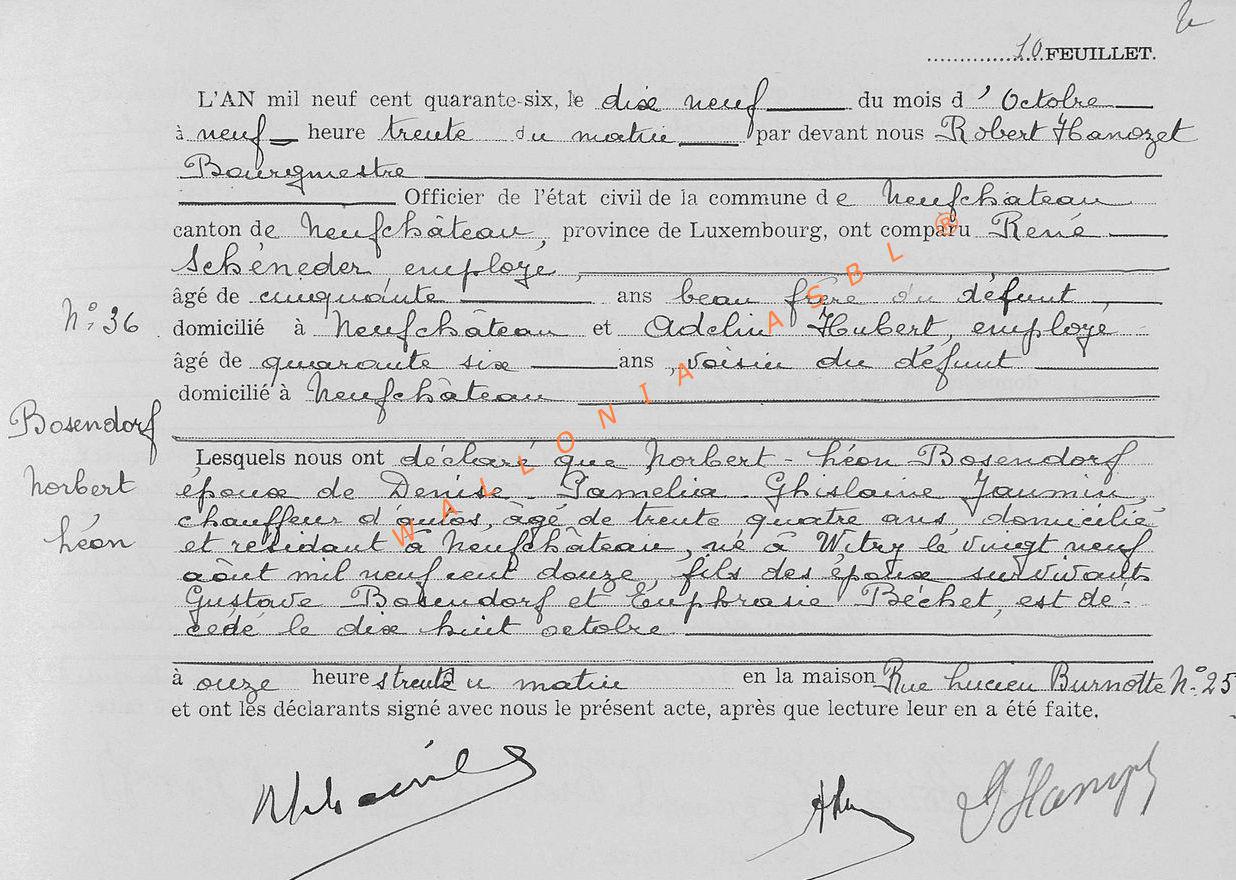 10 FEUILLET.
L'AN mil neuf cent quarante-six, le dix neuf du mois d'Octobre
à neuf heure trente du matin par devant nous Robert Hanozet
Bourgmestre
Officier de l'état civil de la commune de Neufchâteau
canton de Neufchâteau, province de Luxembourg, ont comparu René
Schéneder, employé,
âgé de cinquante ans beau frère du défunt,
N° 36
domicilié à Neufchâteau et Adelin Hubert, employé
âgé de quarante six ans, voisin du défunt
domicilié à Neufchâteau
Bosendorf
Norbert
Léon
Lesquels nous ont déclaré que Norbert-Léon Bosendorf
époux de Denise-Pamélia-Ghislaine Jaumin,
chauffeur d'autos, âgé de trente quatre ans, domicilié
et résidant à Neufchâteau, né à Witry le vingt neuf
août mil neuf cent douze, fils des époux survivants
Gustave Bosendorf et Euphrasie Béchet, est dé-
cédé le dix huit octobre
à onze heures trente du matin en la maison Rue Lucien Burnotte N° 25
et ont les déclarants signé avec nous le présent acte, après que lecture leur en a été faite.
WALLONIA ASBL ®